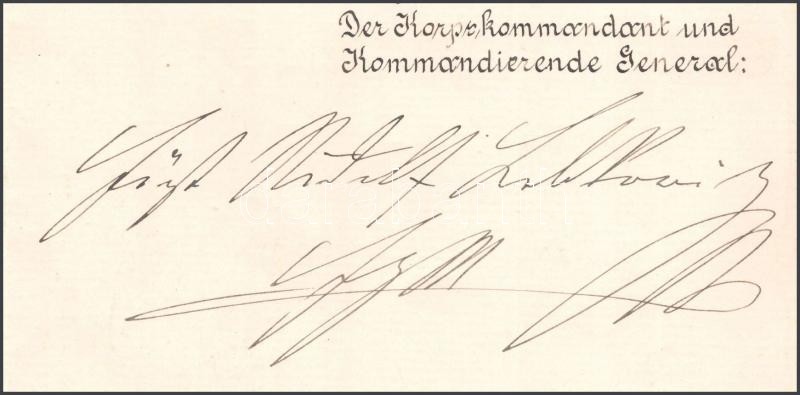 Der Korpskommandant und
Kommandierende General:
Fürst Rudolf Lobkowitz
FZM